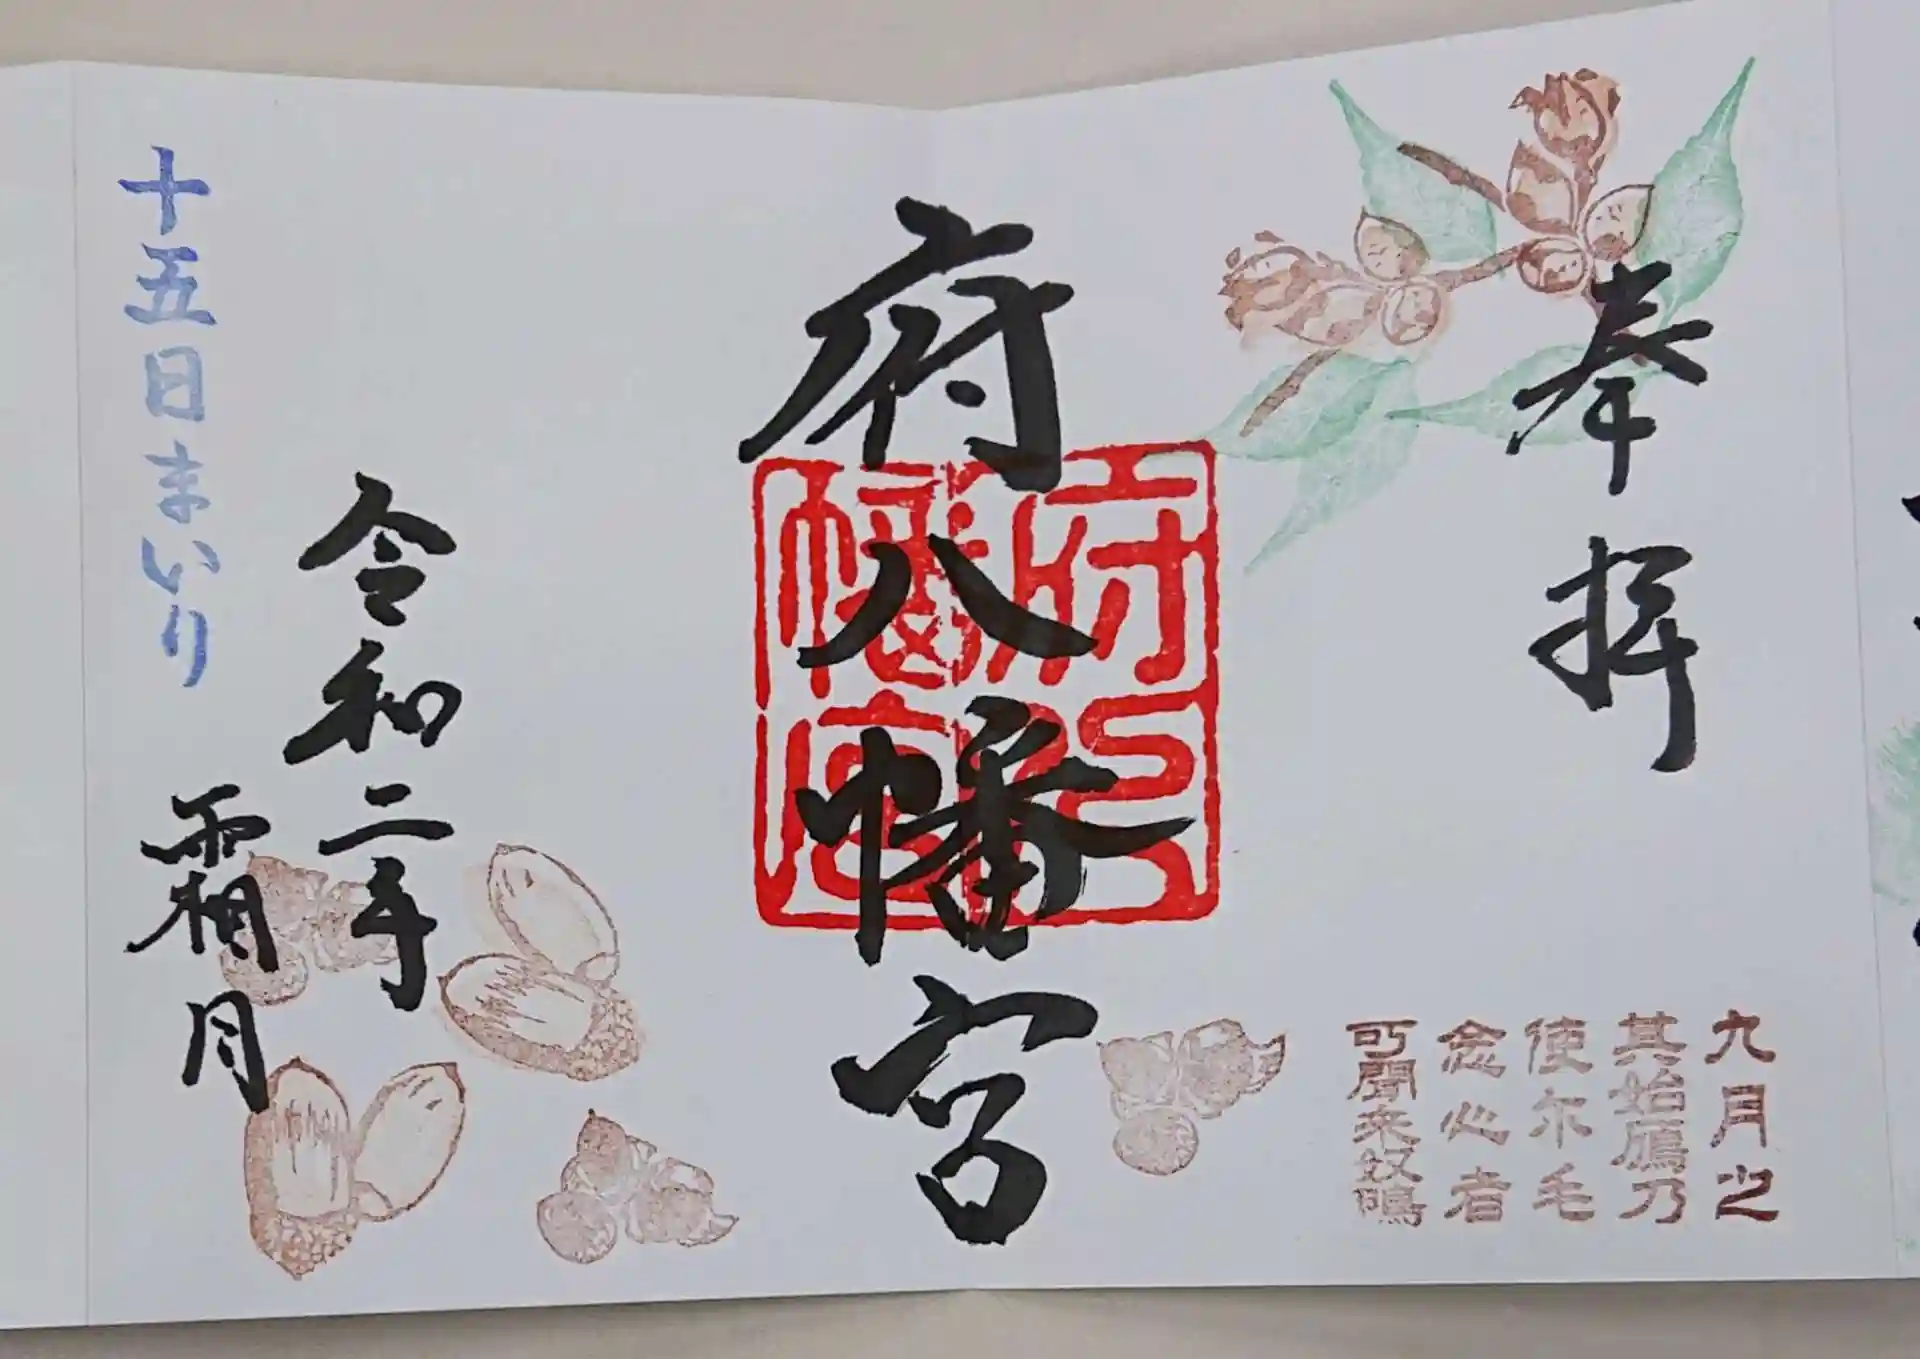 奉拝
九月之
其始鴈乃
使尓毛
念心者
可聞来奴鴨
府八幡宮
府八幡宮
令和二年
霜月
十五日まいり